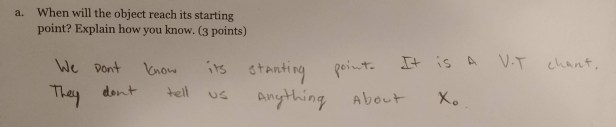 a. When will the object reach its starting
point? Explain how you know. (3 points)
We Dont know its starting point. It is A V.T chart.
They dont tell us Anything About X₀.